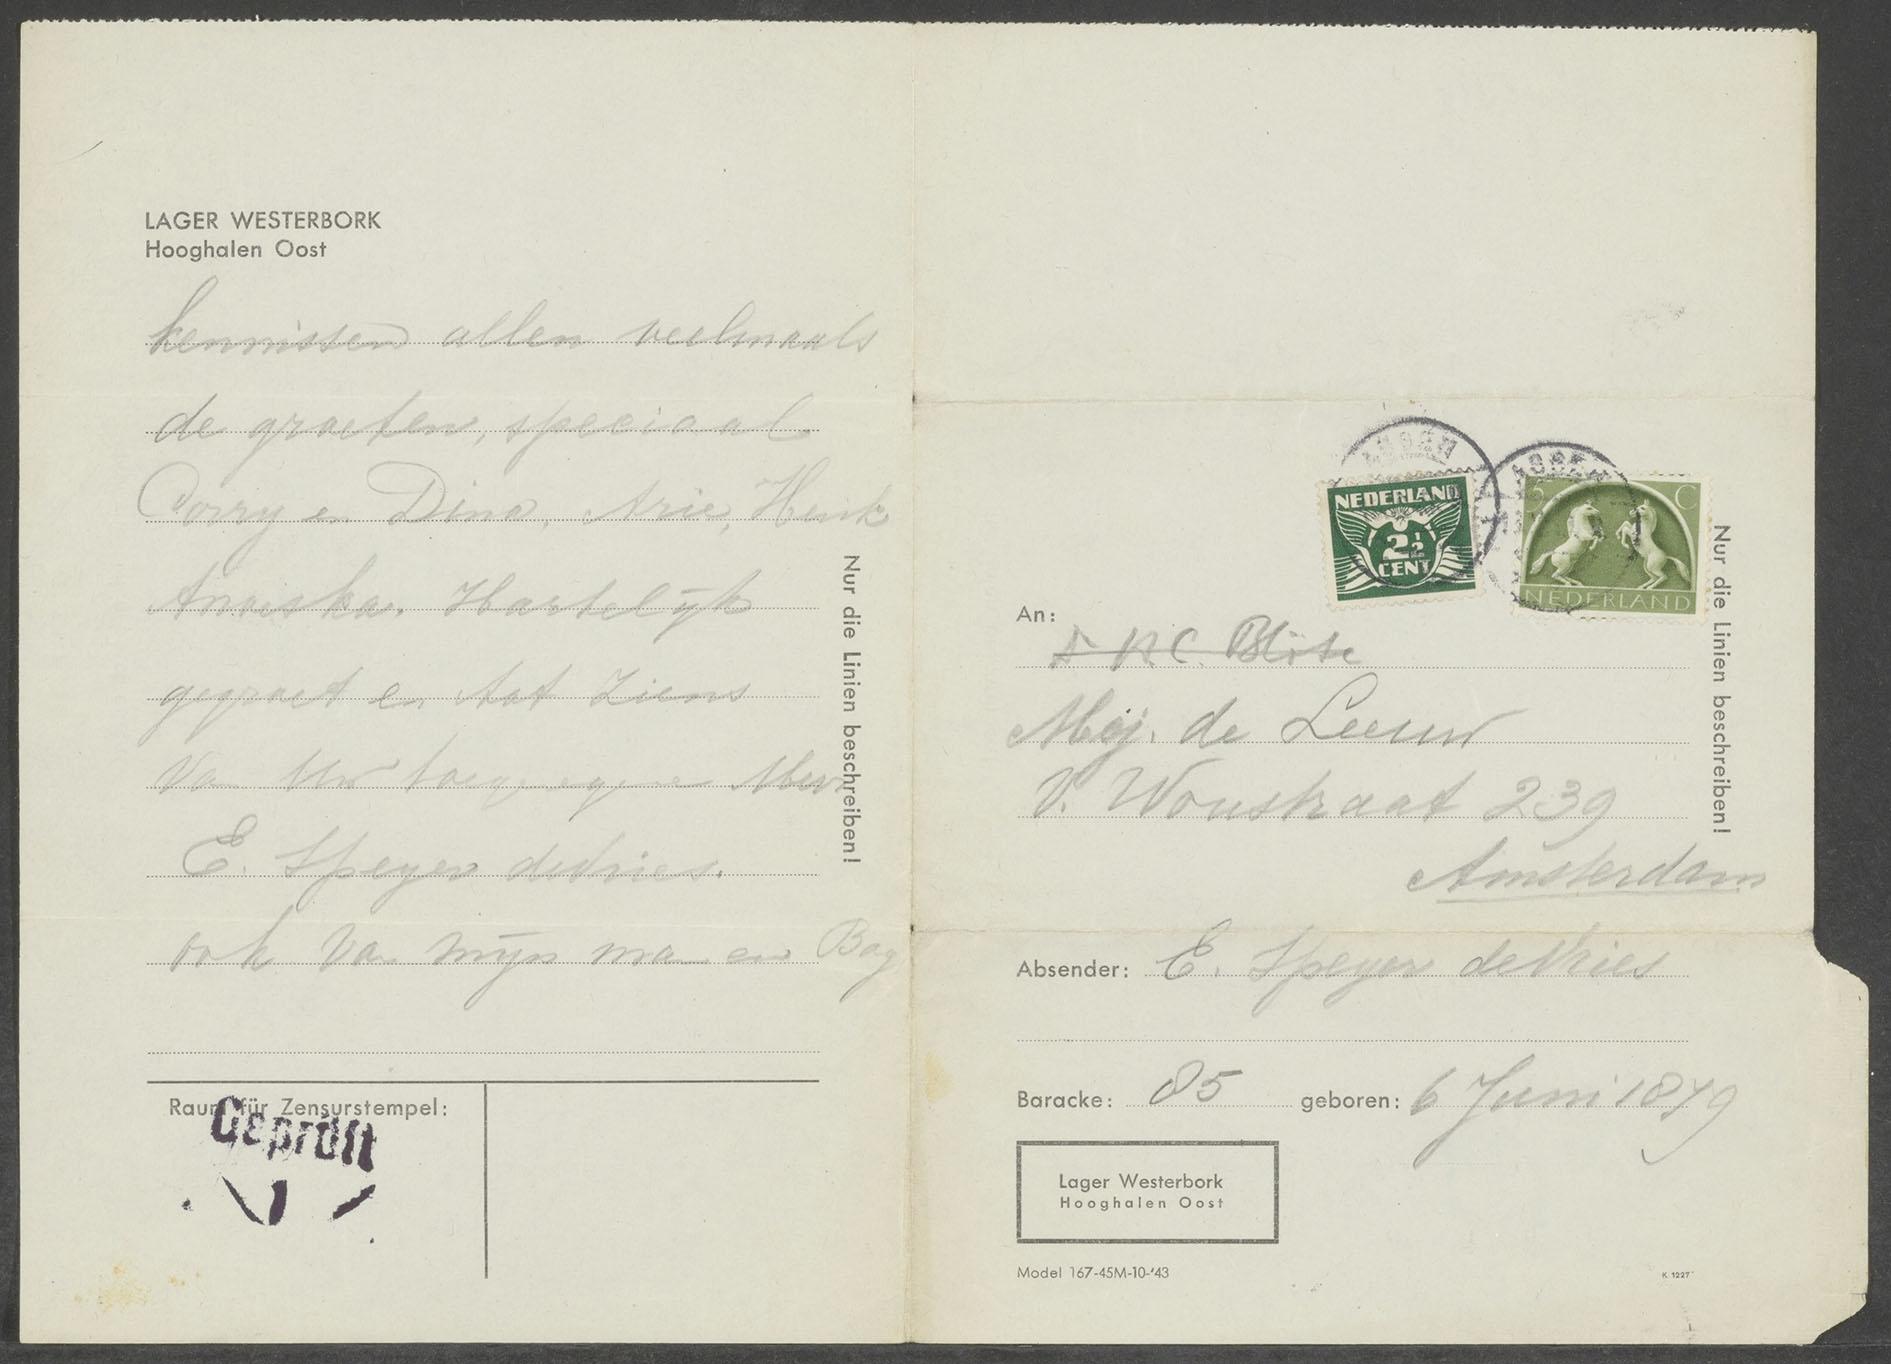 LAGER WESTERBORK
Hooghalen Oost
kennissen allen veelmaals
de groeten, speciaal
Corry en Dina, Arie, Henk
Hartelijk
gegroet en tot ziens
Van Uw toegenegene Mevr
E. Speyer de Vries.
ook van mijn man en
Nur die Linien beschreiben!
Raum für Zensurstempel:
Geprüft
ASSEN
NEDERLAND
2½
CENT
ASSEN
5 C
NEDERLAND
An:
Mej. de Leeuw
V. Woustraat 239
Amsterdam
Nur die Linien beschreiben!
Absender: E. Speyer de Vries
Baracke: 85 geboren: 6 Juni 1879
Lager Westerbork
Hooghalen Oost
Model 167-45M-10-'43
K 1227